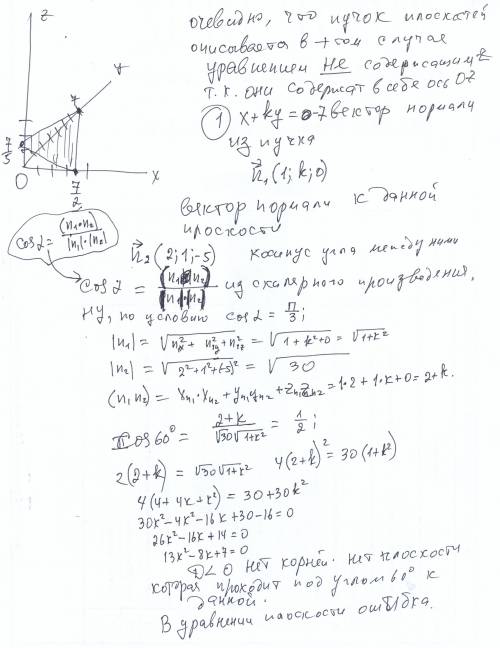 z
y
7
7/5
0
7/2
x
очевидно, что пучок плоскостей
описывается в этом случае
уравнением не содержащим z
т.к. они содержат в себе ось OZ
① x+ky=0 → вектор нормали
из пучка
n₁(1; k; 0)
вектор нормали к данной
плоскости
cos α = (n₁·n₂)/|n₁|·|n₂|
n₂(2; 1; -5) косинус угла между ними
cos α = (n₁ n₂)/|n₁|·|n₂| из скалярного произведения.
ну, по условию cos α = π/3;
|n₁| = √(n₁ₓ² + n₁y² + n₁z²) = √(1+k²+0) = √(1+k²)
|n₂| = √(2²+1²+(-5)²) = √30
(n₁ n₂) = xn₁·xn₂ + yn₁yn₂ + zn₁zn₂ = 1·2+1·k+0 = 2+k.
cos 60° = (2+k)/(√30√(1+k²)) = 1/2;
2(2+k) = √30√(1+k²) 4(2+k)² = 30(1+k²)
4(4+4k+k²) = 30+30k²
30k²-4k²-16k+30-16=0
26k²-16k+14=0
13k²-8k+7=0
D<0 нет корней. нет плоскости
которая проходит под углом 60° к
данной.
В уравнении плоскости ошибка.